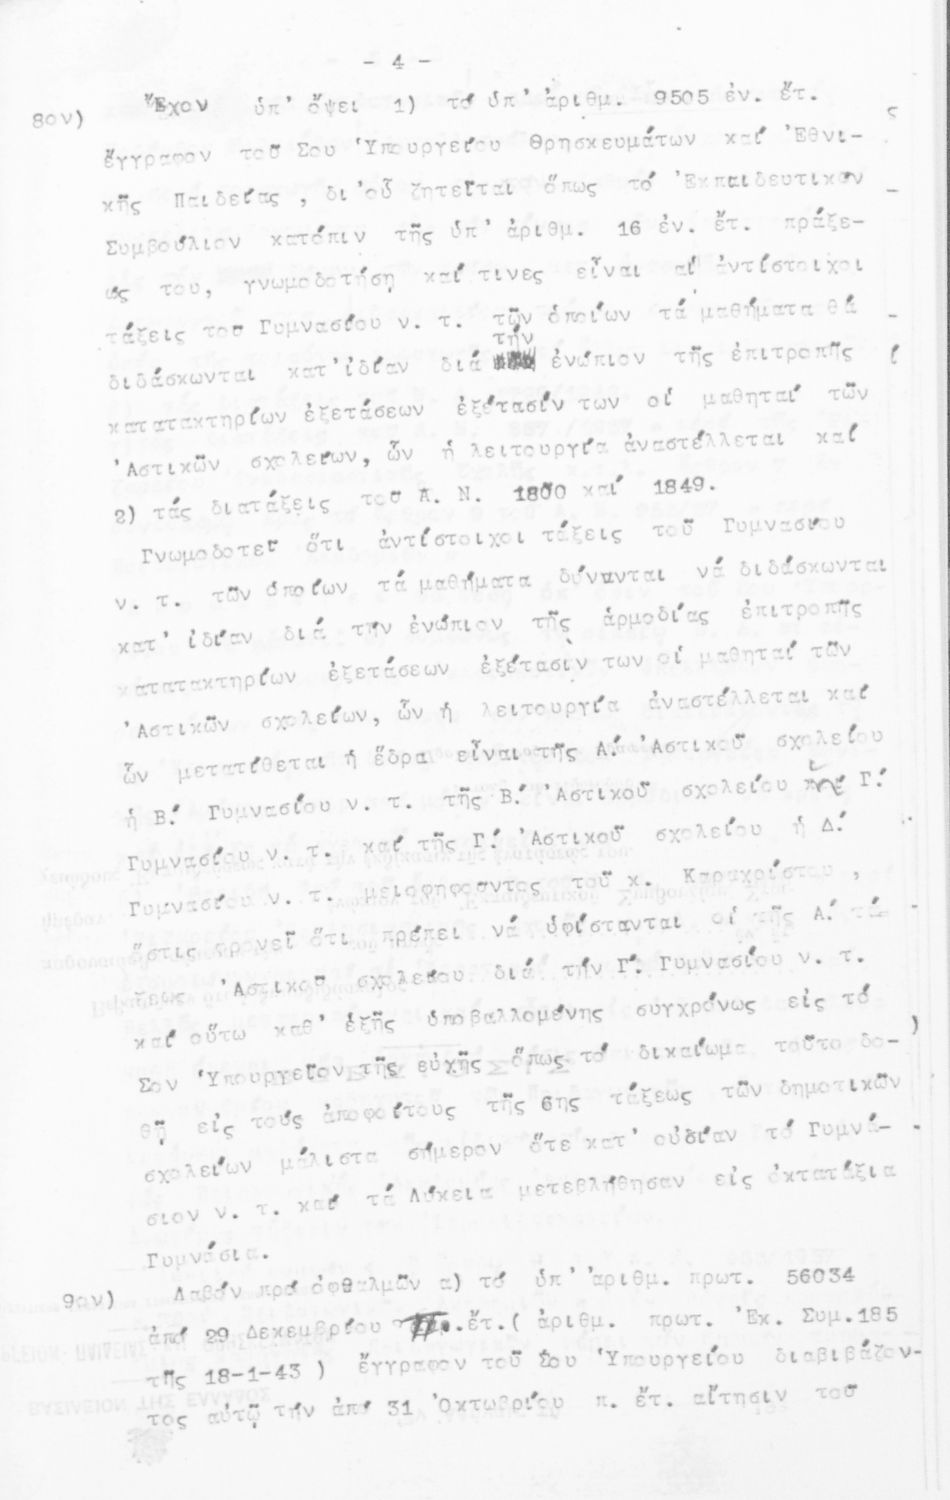 - 4 -
8ον) Ἔχον ὑπ' ὄψει 1) τό ὑπ' ἀριθμ. 9505 ἐν. ἔτ.
ἔγγραφον τοῦ Σου Ὑπουργείου Θρησκευμάτων καί Ἐθνι-
κῆς Παιδείας , δι'οὗ ζητεῖται ὅπως τό Ἐκπαιδευτικόν
Συμβούλιον κατόπιν τῆς ὑπ' ἀριθμ. 16 ἐν. ἔτ. πράξε-
ώς του, γνωμοδοτήσῃ καί τινες εἶναι αἱ ἀντίστοιχοι
τάξεις του Γυμνασίου ν. τ. τῶν ὁποίων τά μαθήματα θά
τήν
διδάσκωνται κατ'ἰδίαν διά ἐνώπιον τῆς ἐπιτροπῆς
κατατακτηρίων ἐξετάσεων ἐξέτασίν των οἱ μαθηταί τῶν
'Αστικῶν σχολείων, ὧν ἡ λειτουργία ἀναστέλλεται καί
2) τάς διατάξεις τοῦ Α. Ν. 1800 καί 1849.
Γνωμοδοτεῖ ὅτι ἀντίστοιχοι τάξεις τοῦ Γυμνασίου
ν. τ. τῶν ὁποίων τά μαθήματα δύνανται νά διδάσκωνται
κατ' ἰδίαν διά τήν ἐνώπιον τῆς ἁρμοδίας ἐπιτροπῆς
κατατακτηρίων ἐξετάσεων ἐξέτασίν των οἱ μαθηταί τῶν
'Αστικῶν σχολείων, ὧν ἡ λειτουργία ἀναστέλλεται καί
ὧν μετατίθεται ἡ ἕδρα εἶναι τῆς Α΄. 'Αστικοῦ σχολείου
ἡ Β΄. Γυμνασίου ν. τ. τῆς Β΄. 'Αστικοῦ σχολείου ἡ Γ΄.
Γυμνασίου ν. τ. καί τῆς Γ΄. 'Αστικοῦ σχολείου ἡ Δ΄.
Γυμνασίου ν. τ. μειοψηφοῦντος τοῦ κ. Καραχρίστου ,
ὅστις φρονεῖ ὅτι πρέπει νά ὑφίστανται οἱ τῆς Α΄. τά-
ξεως 'Αστικοῦ σχολείου διά τήν Γ΄. Γυμνασίου ν. τ.
καί οὕτω καθ' ἑξῆς ὑποβαλλομένης συγχρόνως εἰς τό
Σον Ὑπουργεῖον τῆς εὐχῆς ὅπως τό δικαίωμα τοῦτο δο-
θῇ εἰς τούς ἀποφοίτους τῆς 6ης τάξεως τῶν δημοτικῶν
σχολείων μάλιστα σήμερον ὅτε κατ' οὐσίαν τό Γυμνά-
σιον ν. τ. καί τά Λύκεια μετεβλήθησαν εἰς ὀκτατάξια
Γυμνάσια.
9ον) Λαβόν πρό ὀφθαλμῶν α) τό ὑπ' ἀριθμ. πρωτ. 56034
ἀπό 29 Δεκεμβρίου π.ἔτ.( ἀριθμ. πρωτ. Ἐκ. Συμ.185
τῆς 18-1-43 ) ἔγγραφον τοῦ Σου Ὑπουργείου διαβιβάζον-
τος αὐτῷ τήν ἀπό 31 Ὀκτωβρίου π. ἔτ. αἴτησιν τοῦ